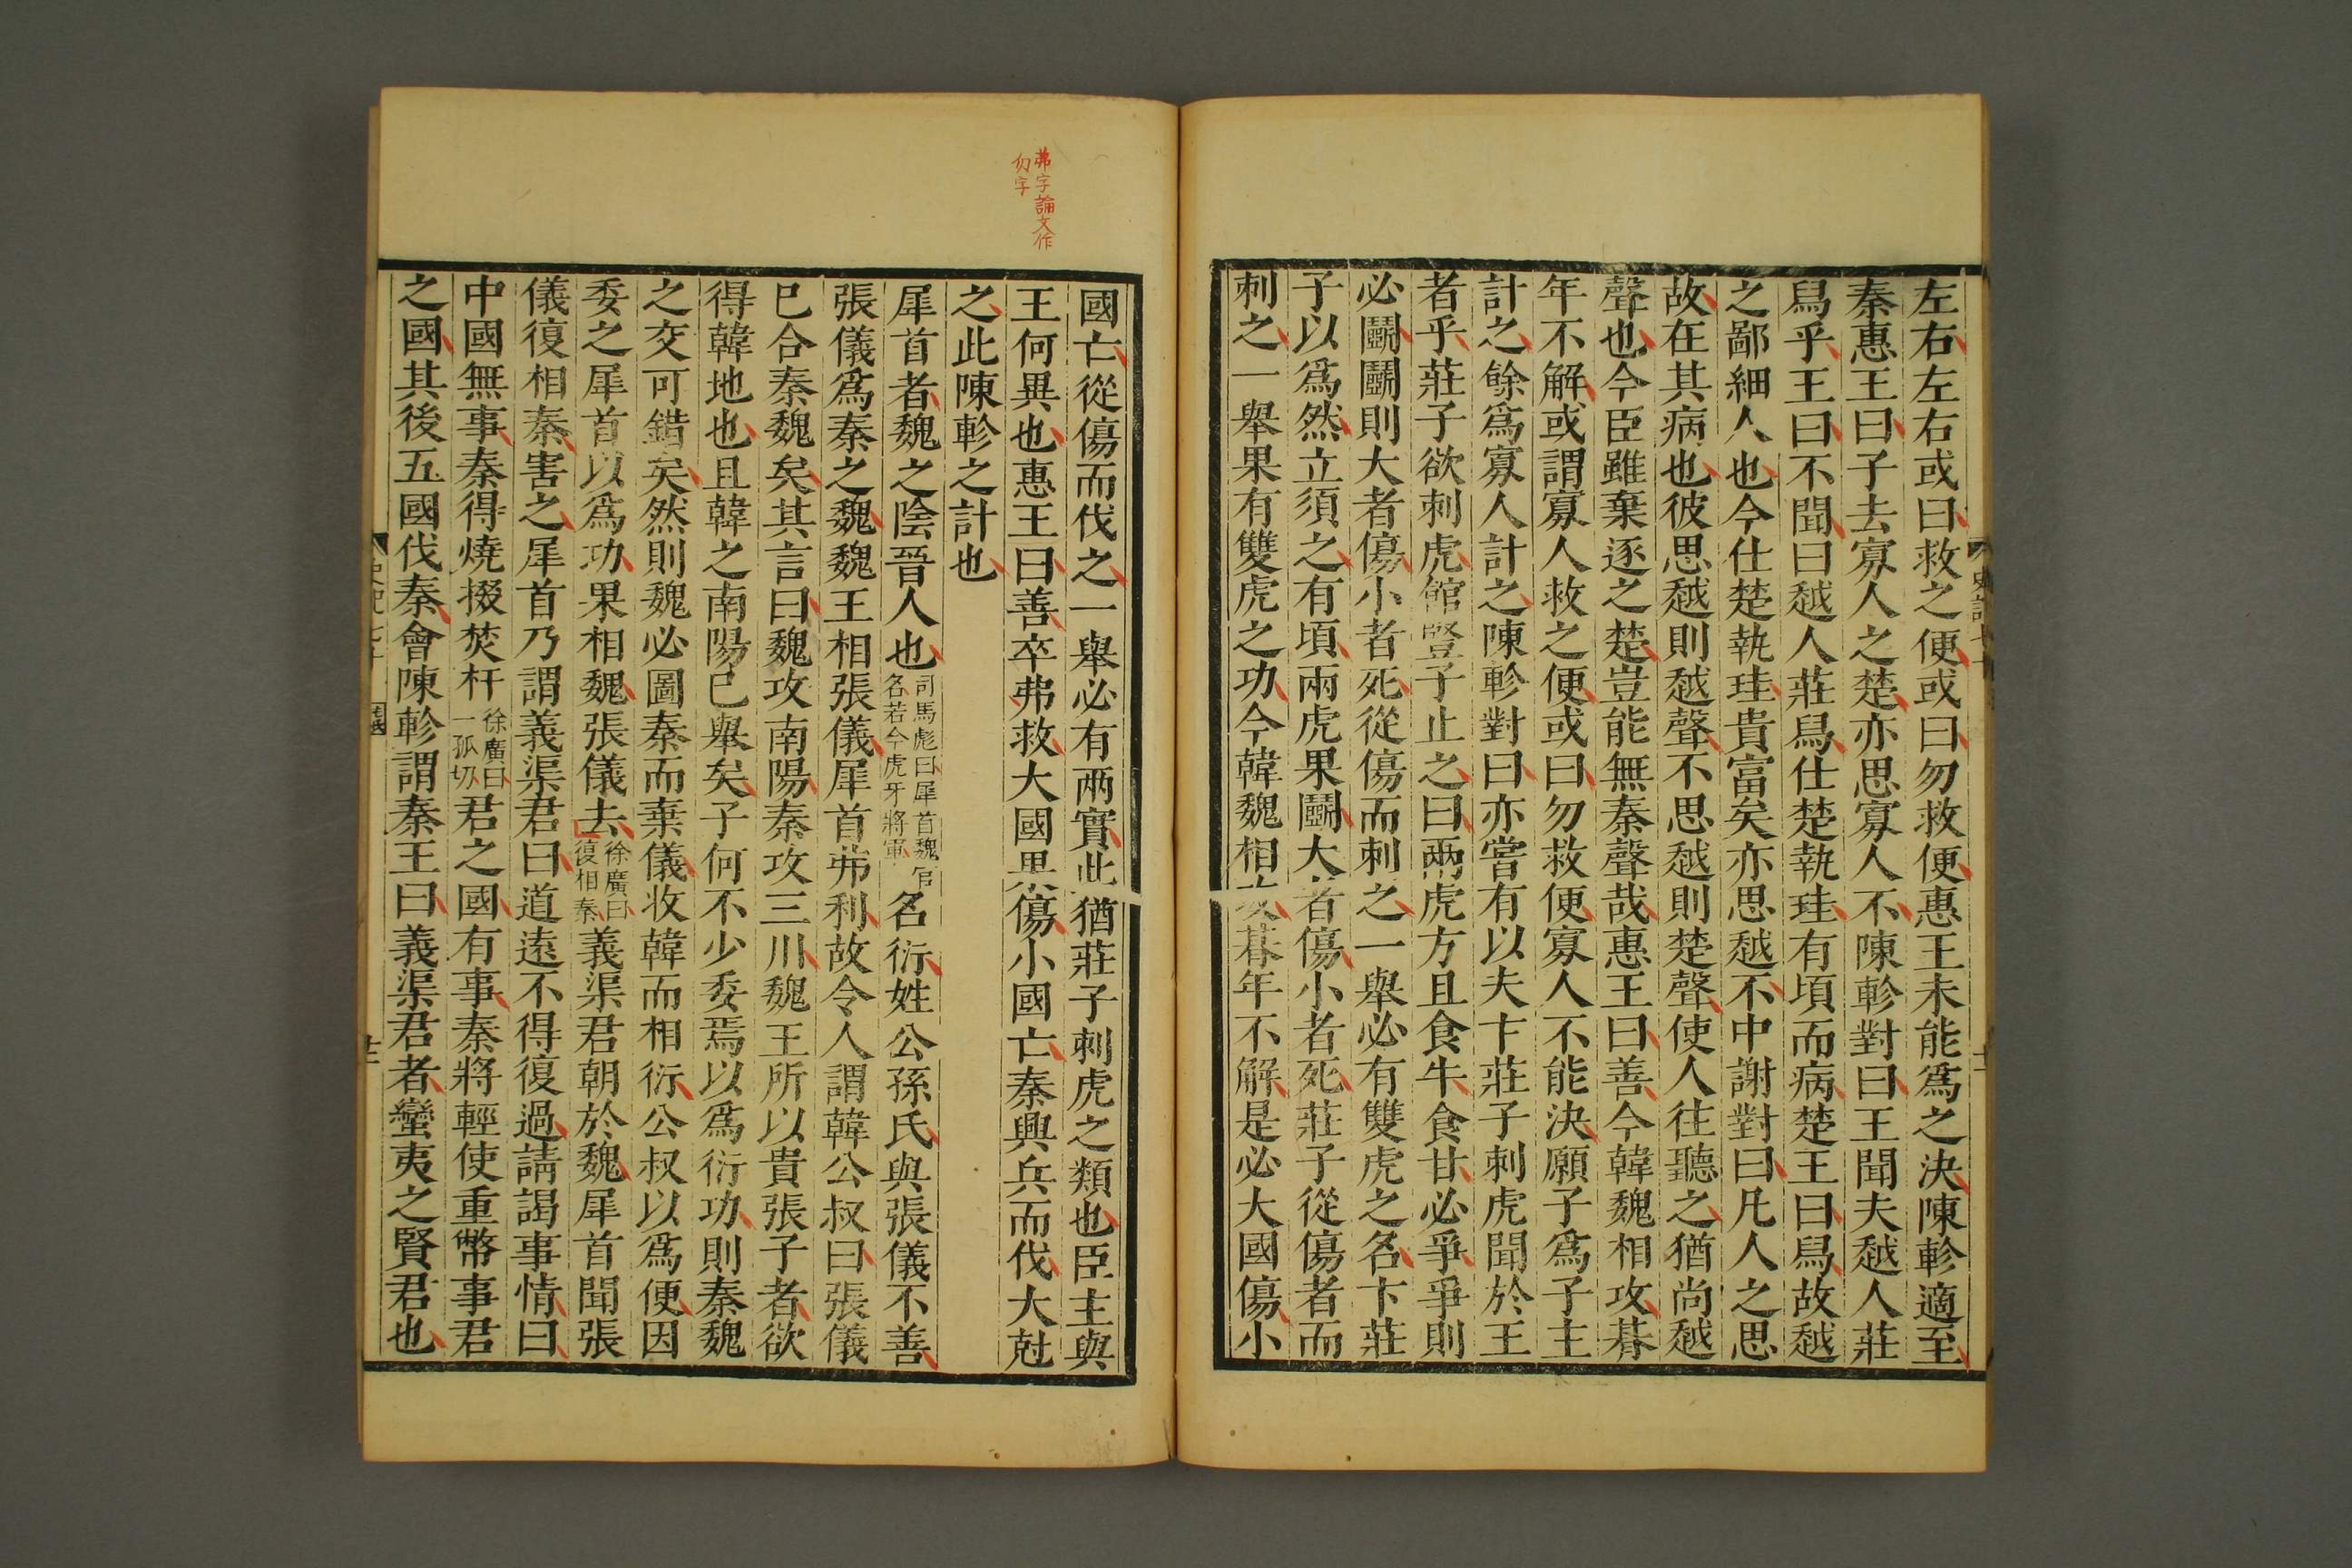 左右左右或曰救之便或曰勿救便惠王未能爲之決陳軫適至
秦惠王曰子去寡人之楚亦思寡人不陳軫對曰王聞夫越人莊
舄乎王曰不聞曰越人莊舄仕楚執珪有頃而病楚王曰舄故越
之鄙細人也今仕楚執珪貴富矣亦思越不中謝對曰凡人之思
故在其病也彼思越則越聲不思越則楚聲使人往聽之猶尚越
聲也今臣雖棄逐之楚豈能無秦聲哉惠王曰善今韓魏相攻朞
年不解或謂寡人救之便或曰勿救便寡人不能決願子爲子主
計之餘爲寡人計之陳軫對曰亦嘗有以夫卞莊子刺虎聞於王
者乎莊子欲刺虎館豎子止之曰兩虎方且食牛食甘必爭爭則
必鬭鬭則大者傷小者死從傷而刺之一舉必有雙虎之名卞莊
子以爲然立須之有頃兩虎果鬭大者傷小者死莊子從傷者而
刺之一舉果有雙虎之功今韓魏相攻朞年不解是必大國傷小
國亡從傷而伐之一舉必有兩實此猶莊子刺虎之類也臣主與
王何異也惠王曰善卒弗救大國果傷小國亡秦興兵而伐大尅
之此陳軫之計也
犀首者魏之陰晉人也司馬彪曰犀首魏官名若今虎牙將軍名衍姓公孫氏與張儀不善
張儀爲秦之魏魏王相張儀犀首弗利故令人謂韓公叔曰張儀
已合秦魏矣其言曰魏攻南陽秦攻三川魏王所以貴張子者欲
得韓地也且韓之南陽已舉矣子何不少委焉以爲衍功則秦魏
之交可錯矣然則魏必圖秦而棄儀收韓而相衍公叔以爲便因
委之犀首以爲功果相魏張儀去徐廣曰復相秦義渠君朝於魏犀首聞張
儀復相秦害之犀首乃謂義渠君曰道遠不得復過請謁事情曰
中國無事秦得燒掇焚杅徐廣曰一孤切君之國有事秦將輕使重幣事君
之國其後五國伐秦會陳軫謂秦王曰義渠君者蠻夷之賢君也
弗字論文作
勿字